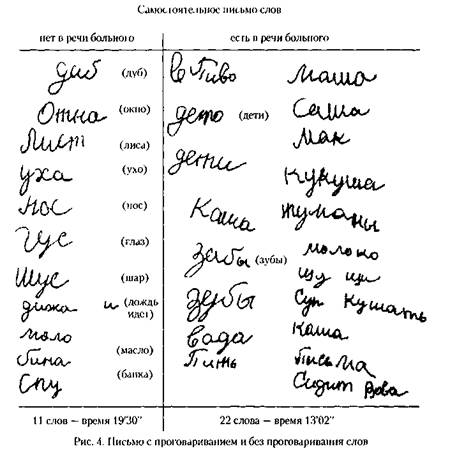 Самостоятельное письмо слов
нет в речи больного
есть в речи больного
даб (дуб)
Отна (окно)
Лист (лиса)
уха (ухо)
нос (нос)
Гус (глаз)
Шус (шар)
дижа и (дождь идет)
мало (масло)
бина (банка)
Спу
Пиво маша
дето (дети) Саша
мак
дети
кукуша
Каша
забы (зубы) молоко
щу щи
зубы Суп Кушать
вада каша
Пить Письма
Сидит Вова
11 слов – время 19'30"
22 слова – время 13'02"
Рис. 4. Письмо с проговариванием и без проговаривания слов